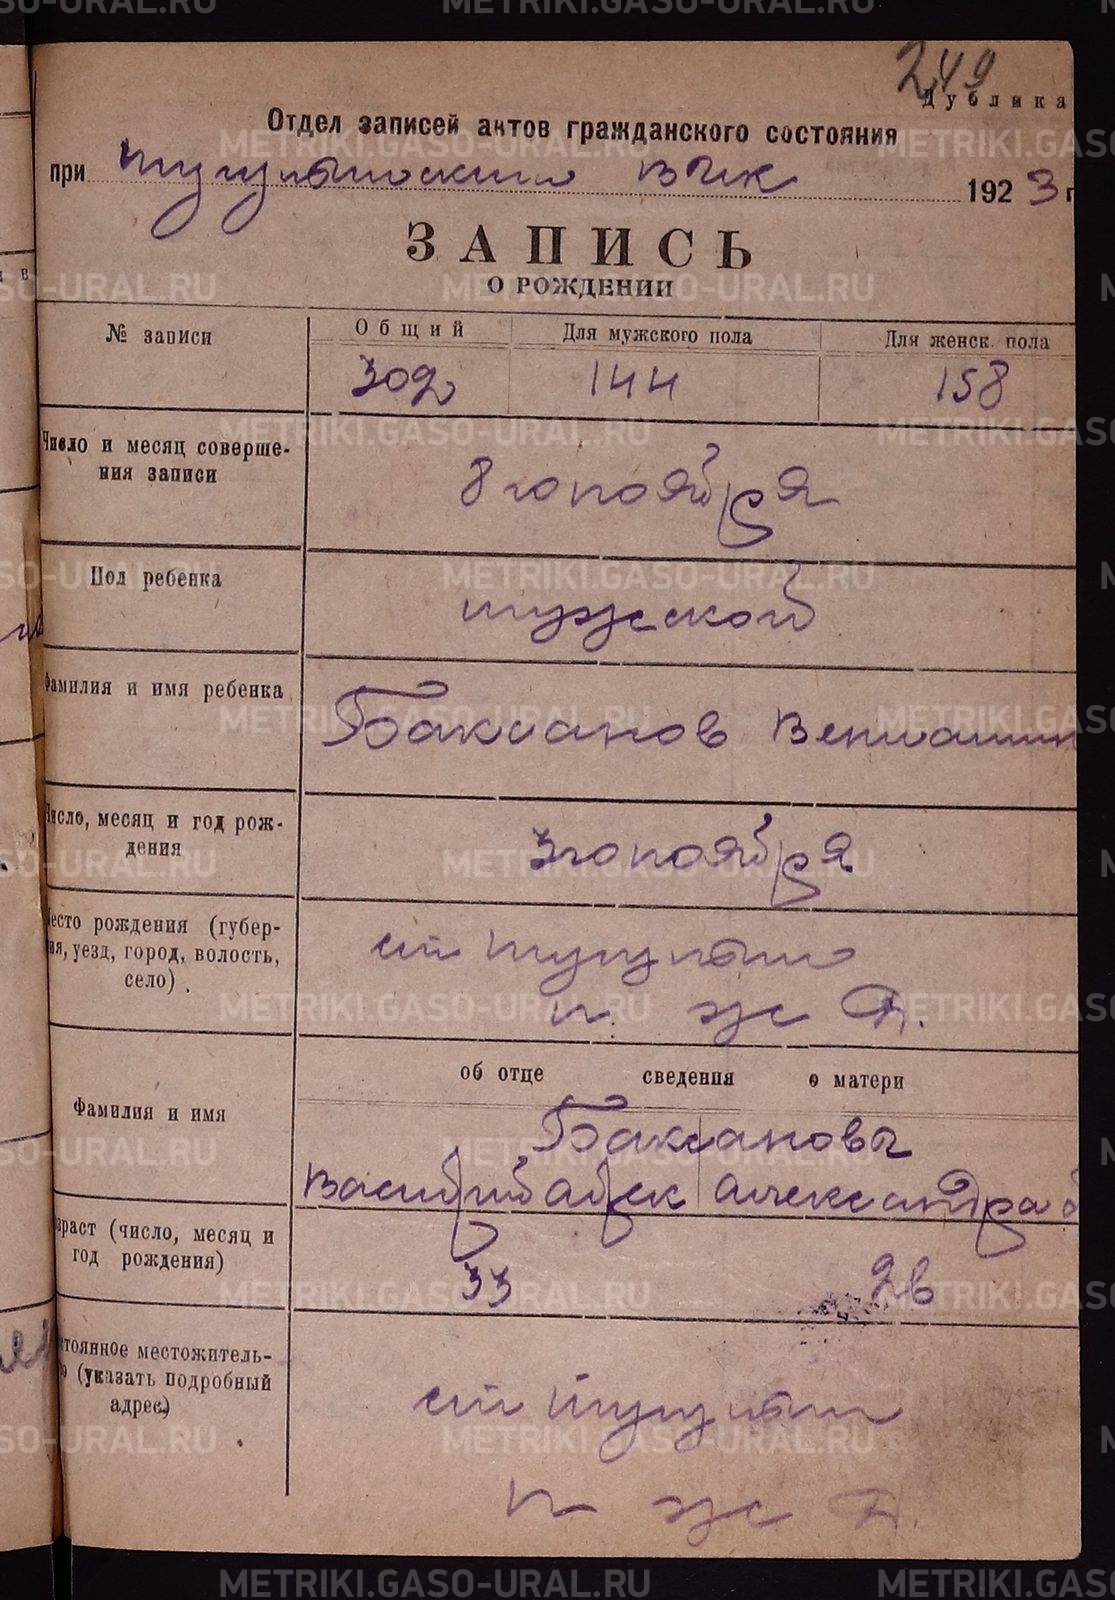 249
Дублика
Отдел записей актов гражданского состояния
при Тугулымском ВИК 1923 г
ЗАПИСЬ
О РОЖДЕНИИ
№ записи
Общий
Для мужского пола
Для женск. пола
302
144
158
Число и месяц соверше-
ния записи
8го ноября
Пол ребенка
мужской
Фамилия и имя ребенка
Баксанов Вениамин
Число, месяц и год рож-
дения
3го ноября
Место рождения (губер-
ния, уезд, город, волость,
село)
ст Тугулым
п ж д.
об отце сведения о матери
Фамилия и имя
Баксановы
Александра
Возраст (число, месяц и
год рождения)
33
26
Постоянное местожитель-
во (указать подробный
адрес)
ст Тугулым
п ж д.
METRIKI.GASO-URAL.RU